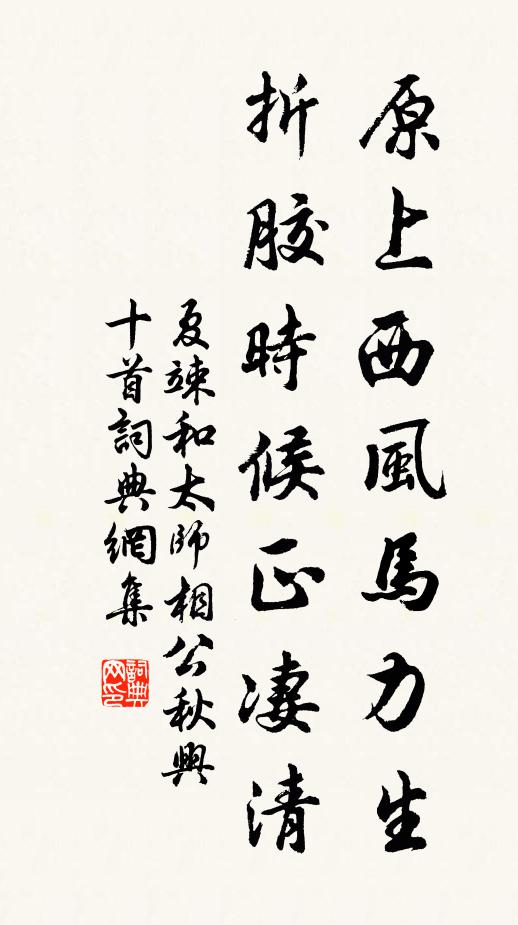 原上西風馬力生
折膠時候正凄清
夏竦和太師相公秋興
十首詞典網集
詞典網印